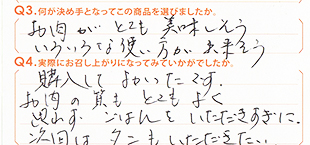 Q3.何が決め手となってこの商品を選びましたか。
お肉がとても美味しそう
いろいろな使い方が出来そう
Q4.実際にお召し上がりになってみていかがでしたか。
購入してよかったです。
お肉の質もとてもよく
思わず ごはんを いただきすぎに。
次回は タンも いただきたい。